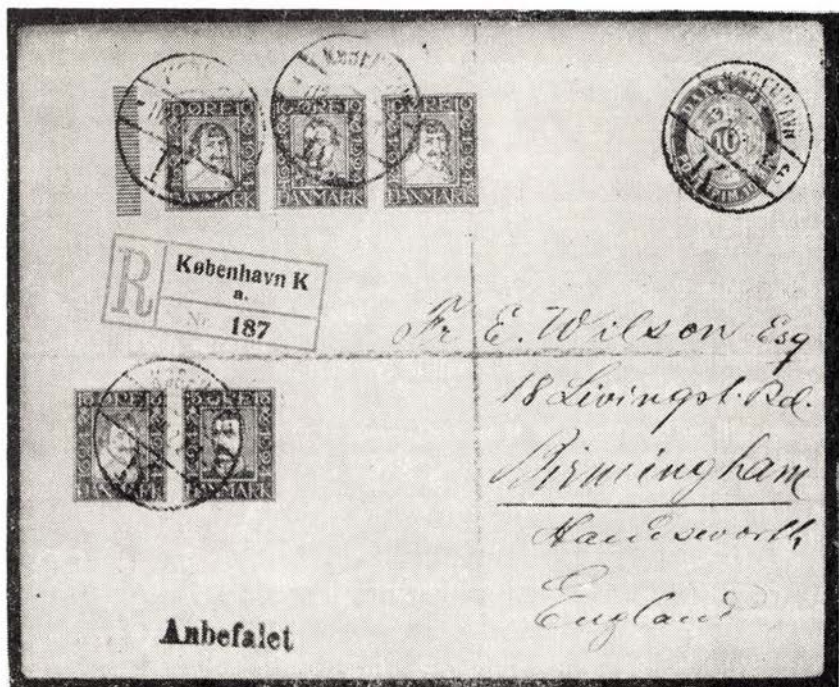 10 ØRE 10
DANMARK
10 ØRE 10
DANMARK
10 ØRE 10
DANMARK
10
KØBENHAVN
R
København K
a.
Nr. 187
Fr E. Wilson Esq
18 Livingst. Rd.
Birmingham
Handsworth
England
DANMARK
DANMARK
Anbefalet